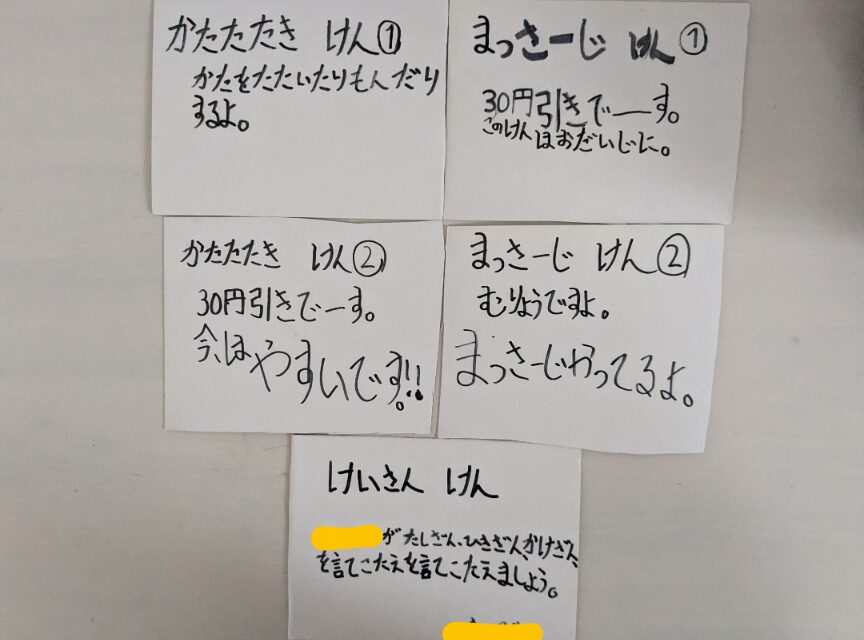 かたたたき けん①
かたをたたいたりもんだり
するよ。
まっさーじ けん①
30円引きでーす。
このけんはおだいじに。
かたたたき けん②
30円引きでーす。
今はやすいです!!
まっさーじ けん②
むりょうですよ。
まっさーじやってるよ。
けいさん けん
がたしざん、ひきざん、かけざん、
を言てこたえを言てこたえましょう。